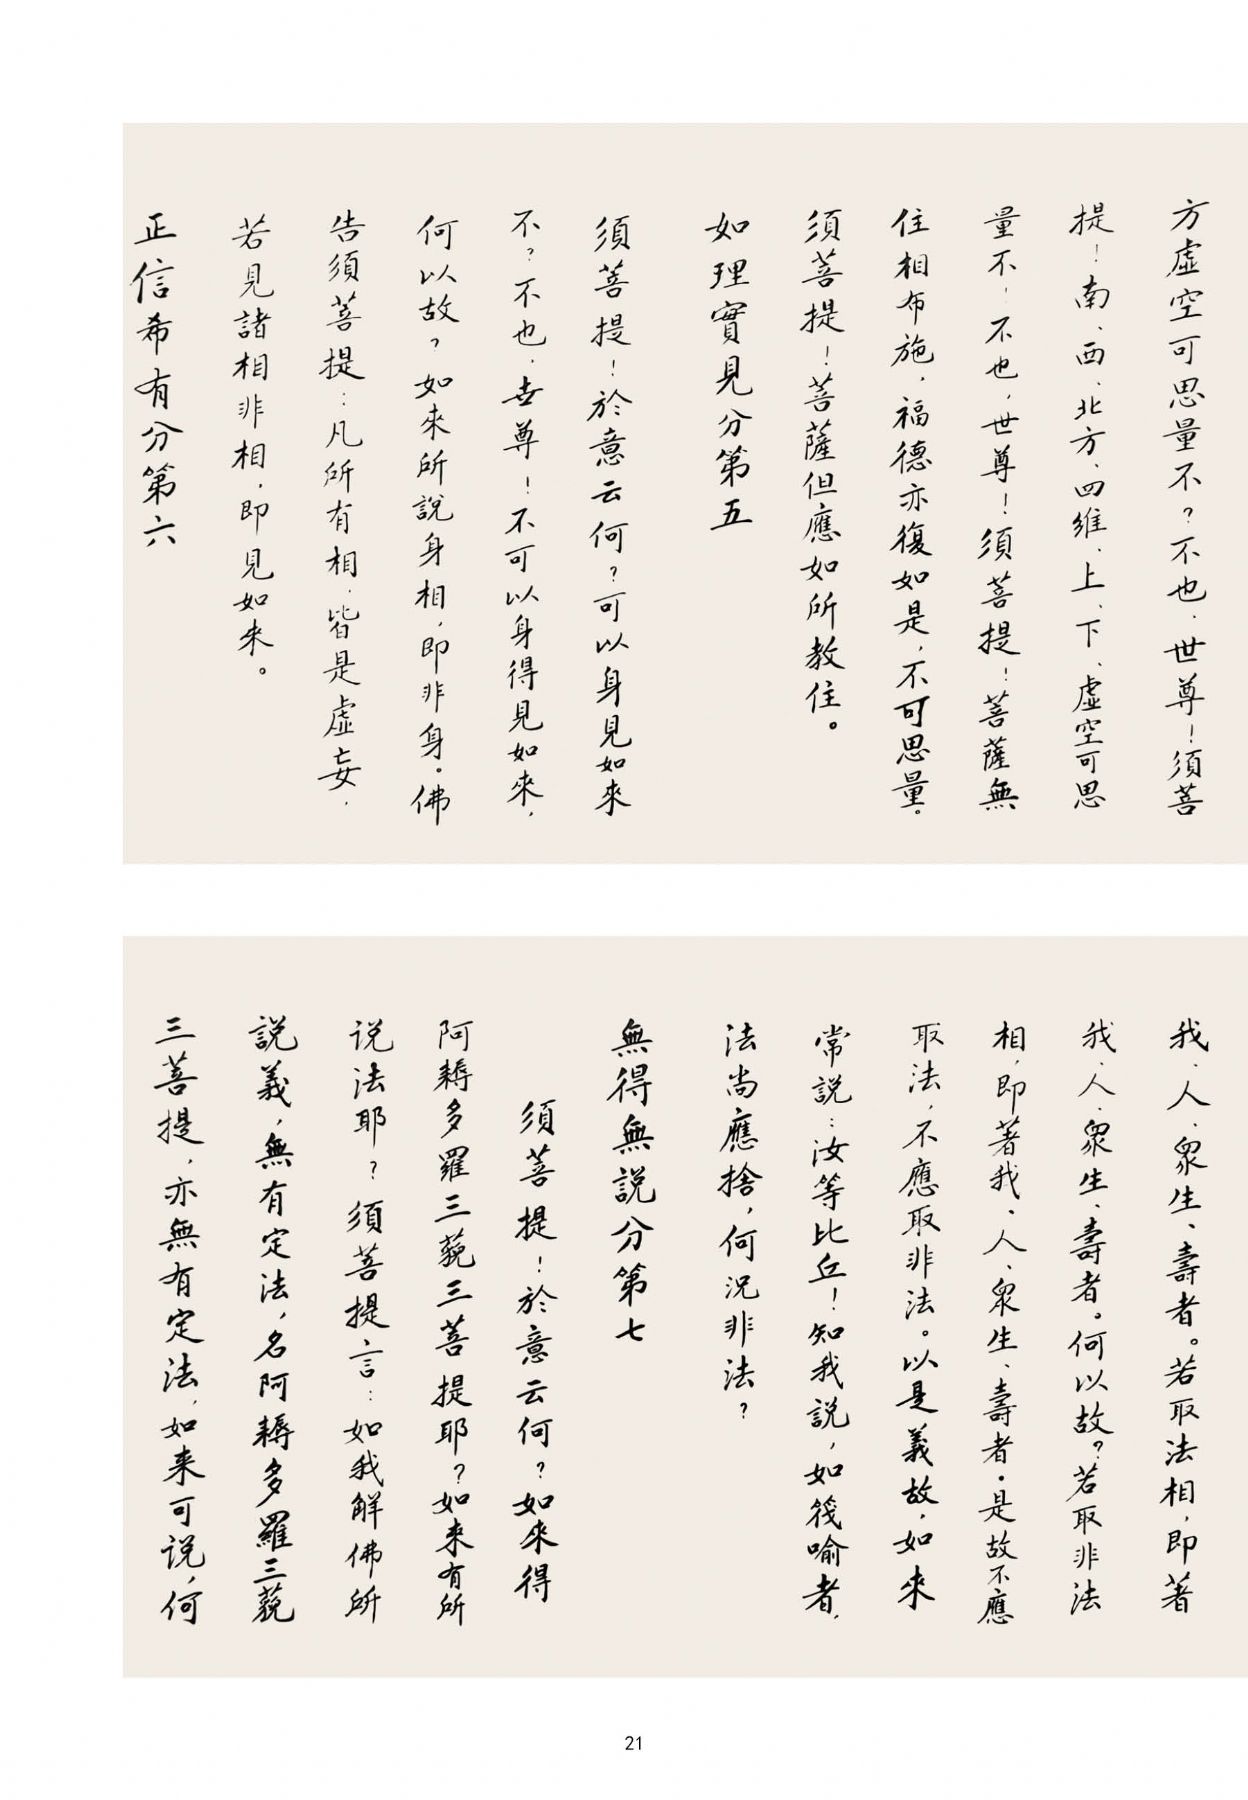 方虛空可思量不？不也、世尊！須菩
提！南、西、北方、四維、上、下、虛空可思
量不！不也，世尊！須菩提！菩薩無
住相布施，福德亦復如是，不可思量。
須菩提！菩薩但應如所教住。
如理實見分第五
須菩提！於意云何？可以身見如來
不？不也，世尊！不可以身得見如來，
何以故？如來所說身相，即非身。佛
告須菩提：凡所有相，皆是虛妄，
若見諸相非相，即見如来。
正信希有分第六
我、人、衆生、壽者。若取法相，即著
我、人、衆生、壽者。何以故？若取非法
相，即著我、人、衆生、壽者。是故不應
取法，不應取非法。以是義故，如來
常説：汝等比丘！知我説，如筏喻者，
法尚應捨，何況非法？
無得無説分第七
須菩提！於意云何？如來得
阿耨多羅三藐三菩提耶？如来有所
说法耶？須菩提言：如我解佛所
説義，無有定法，名阿耨多羅三藐
三菩提，亦無有定法，如来可说，何
21